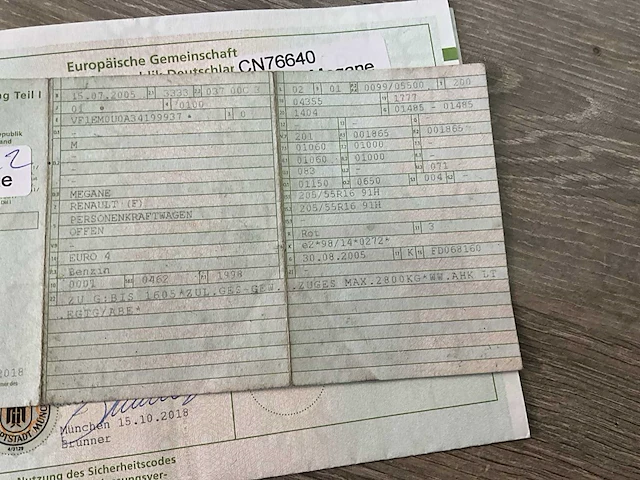 Europäische Gemeinschaft
CN76640
Megane
ng Teil I
15.07.2005 3333 037 000 3
01 0100
VF1EM0U0A34199937 0
M
MEGANE
RENAULT (F)
PERSONENKRAFTWAGEN
OFFEN
EURO 4
Benzin
0001 0462 1998
ZU G:BIS 1605*ZUL.GES-GEW.
.EGTG/ABE*
02 01 0099/05500 200
04355 1777
1404 01485 - 01485
201 001865 001865
01060 01000
01060 01000
083 071
01150 0650 004 -
205/55R16 91H
205/55R16 91H
Rot 3
e2*98/14*0272*
30.08.2005 K FDV68160
.ZUGES MAX.2800KG*WW.AHK LT
2018
München 15.10.2018
Brunner
Nutzung des Sicherheitscodes